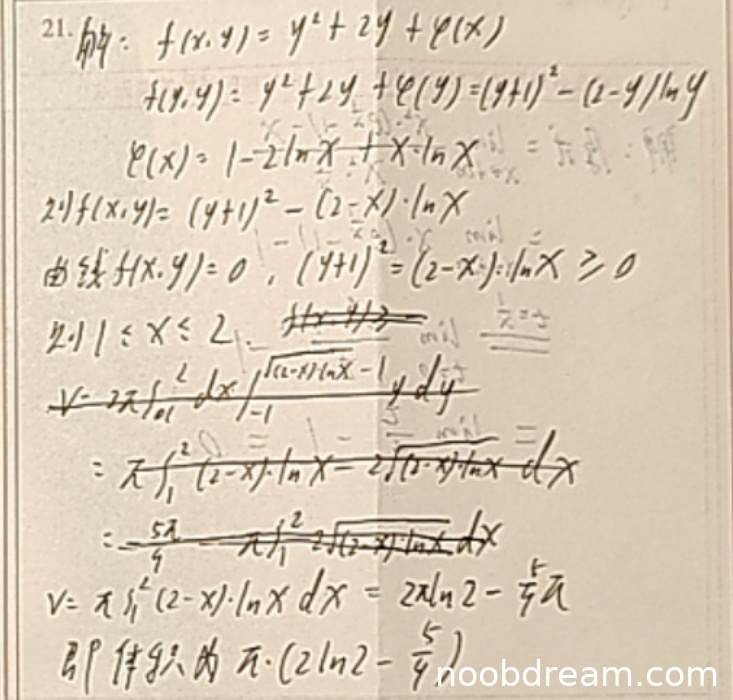 21. 解: f(x,y)= y²+2y+φ(x)
f(y,y)= y²+2y+φ(y)=(y+1)²-(2-y)lny
φ(x)= 1-2lnx+x·lnx
则f(x,y)= (y+1)²-(2-x)·lnx
曲线f(x,y)=0, (y+1)²=(2-x)·lnx≥0
则1≤x≤2.
V= 2π∫₁² dx∫₋₁^(√((2-x)·lnx)-1) y dy
= π∫₁² (2-x)·lnx - 2√((2-x)·lnx) dx
= -5π/4 - π∫₁² 2√((2-x)·lnx) dx
V= π∫₁² (2-x)·lnx dx = 2πln2 - 5/4π
即体积为 π·(2ln2 - 5/4)
noobdream.com